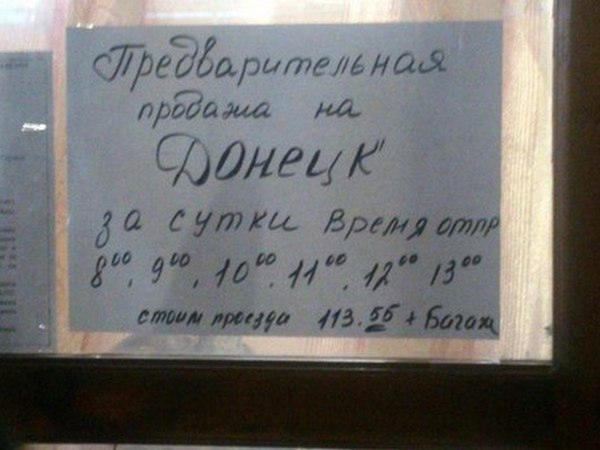 Предварительная
продажа на
Донецк
за сутки Время отпр
8⁰⁰, 9⁰⁰, 10⁰⁰. 11⁰⁰. 12⁰⁰ 13⁰⁰
стоим проезда 113.55 + Багаж